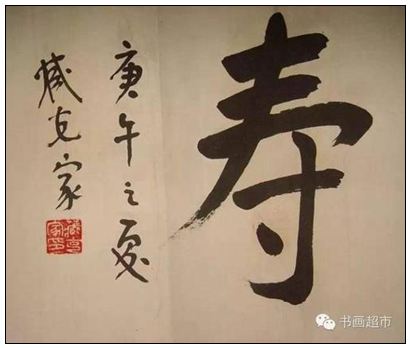 寿
庚午之夏
臧克家
书画超市